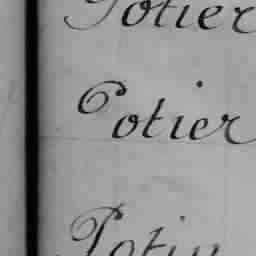 Potier
Potier
Potin